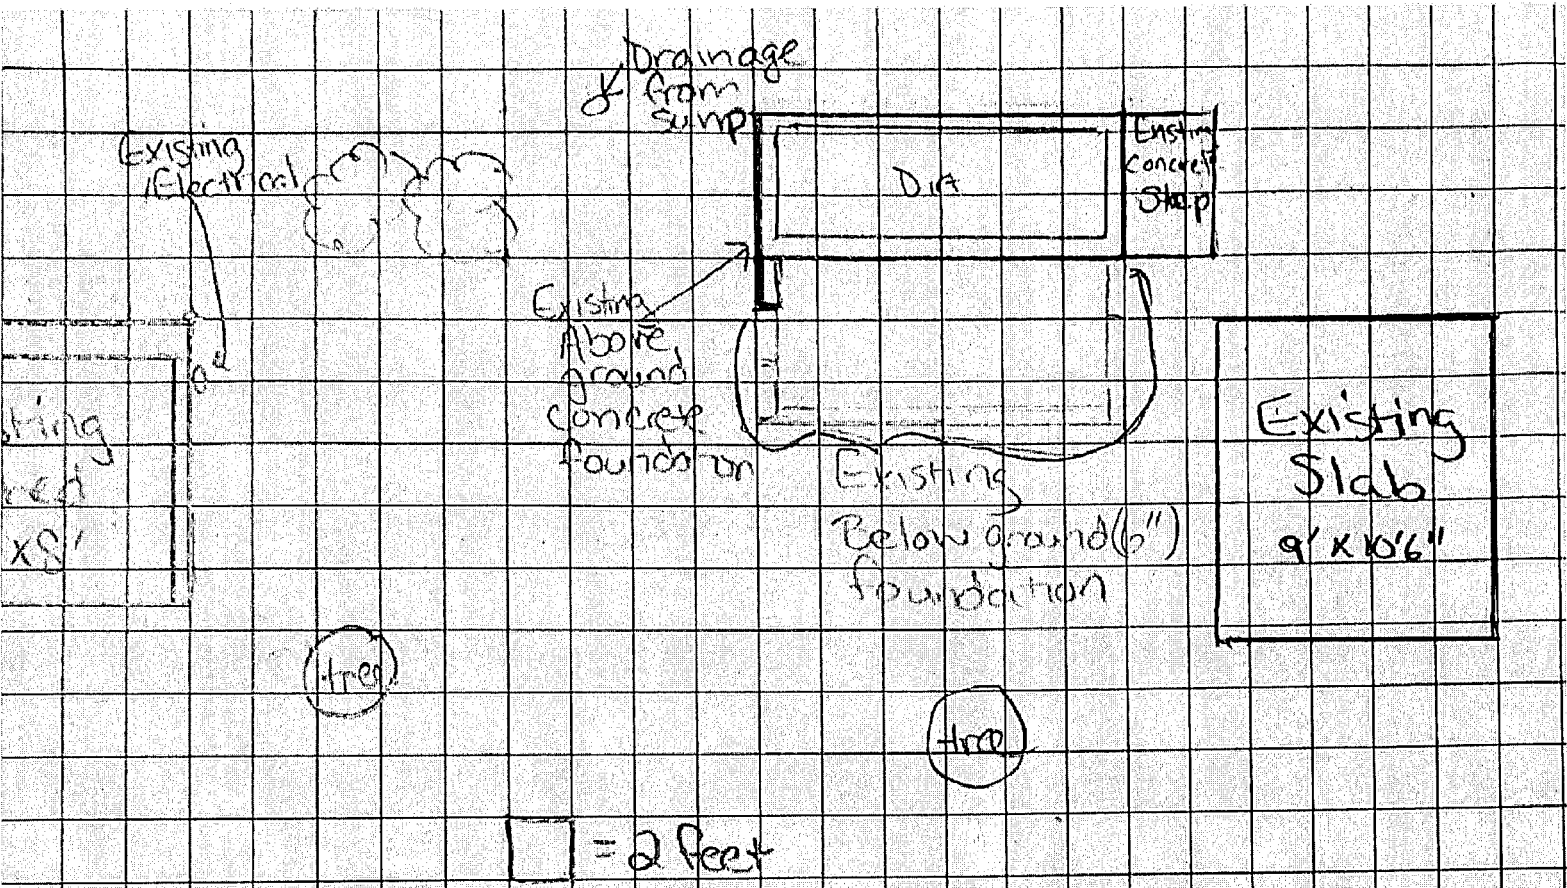 Drainage
from
sump
Existing
Electrical
Dirt
Existing
Concrete
Step
Existing
Above
ground
concrete
foundation
Existing
Below ground (6")
foundation
Existing
Slab
9' x 10'6"
sting
x8'
tree
tree
= 2 feet